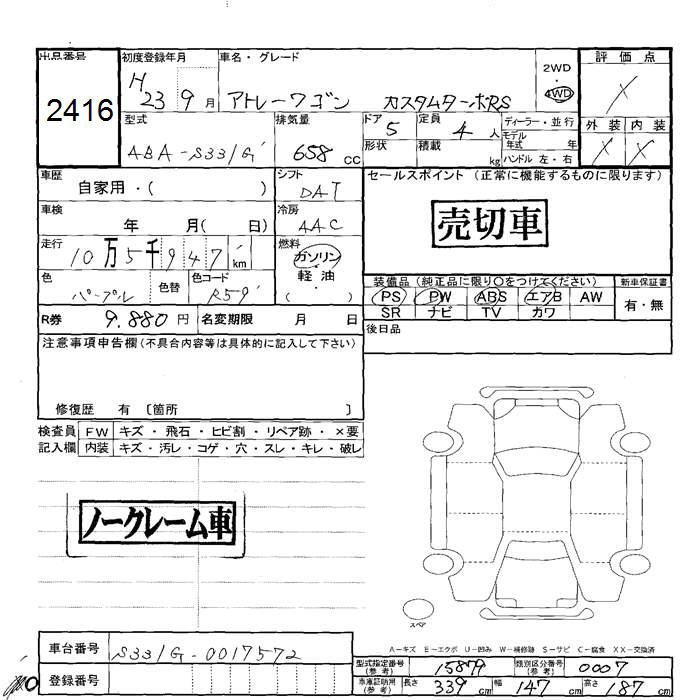 出品番号
2416
初度登録年月
H 23 9月
車名・グレード
アトレーワゴン カスタムターボRS
2WD
4WD
評価点
X
外装 内装
X X
型式
ABA-S331G
排気量
658 cc
ドア 5
形状
定員 4 人
積載 kg
ディーラー・並行
モデル年式 年
ハンドル 左・右
車歴
自家用・( )
シフト
DAT
セールスポイント(正常に機能するものに限ります)
売切車
車検
年 月( 日)
冷房
AAC
走行
10万5千947km
燃料
ガソリン
軽油
( )
色
パープル
色替
色コード
R59
装備品(純正品に限り○をつけてください)
新車保証書
PS PW ABS エアB AW
SR ナビ TV カワ
有・無
R券 9.880円
名変期限 月 日
後日品
注意事項申告欄(不具合内容等は具体的に記入して下さい)
修復歴 有 〔箇所 〕
検査員記入欄
FW キズ・飛石・ヒビ割・リペア跡・×要
内装 キズ・汚レ・コゲ・穴・スレ・キレ・破レ
ノークレーム車
スペア
A−キズ E−エクボ U−凹み W−補修跡 S−サビ C−腐食 XX−交換済
車台番号 S331G-0017572
登録番号
型式指定番号(参考) 15879
類別区分番号(参考) 0007
車庫証明用(参考) 長さ 339cm 幅 147cm 高さ 187cm